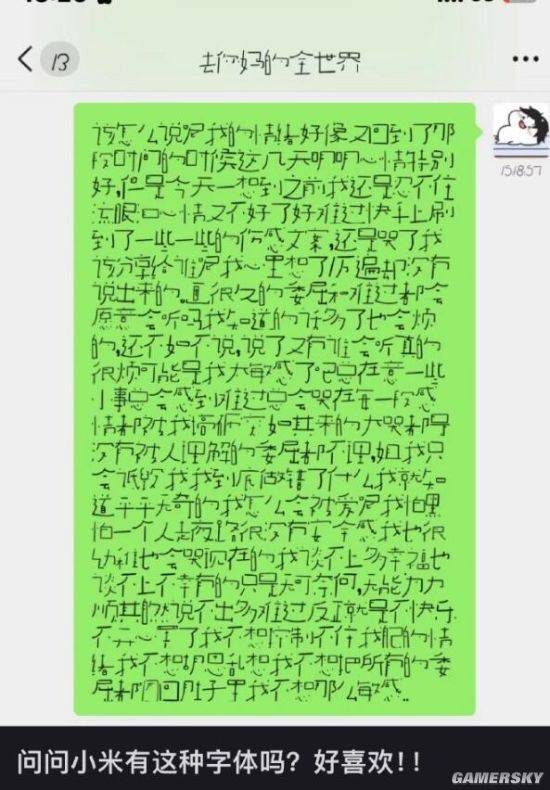 13
去你妈的全世界
该怎么说呢我的情绪好像又回到了那
段时间的时候这几天明明心情特别
好,但是今天一想到之前我还是忍不住
流眼 心情又不好了好难过快手上刷
到了一些一些的伤感文案,还是哭了我
该分享给谁呢我心里想了 遍却没有
说出来的。 很久的委屈和难过都会
愿意会听吗我知道的话多了也会烦
的,还不如不说,说了又有谁会听真的
很烦可能是我太敏感了吧总在意一些
小事总会感到难过总会哭在每一段感
情都被我搞 如其来的大哭都是
没有被人理解的委屈都不理,如我只
会 我找到底做错了什么我就知
道平平无奇的我怎么会被爱呢我怕黑
怕一个人走夜路很没有安全感我也很
幼稚也会哭现在的我谈不上多幸福也
谈不上不幸有的只是无可奈何,无能力力
顺其 说不出多难过反正就是不快乐
不开心 了我不想控制不住我 的情
绪我不想胡思乱想我不想把所有的委
屈都 回肚子里我不想那么敏感..
151857
问问小米有这种字体吗? 好喜欢!!
GAMERSKY